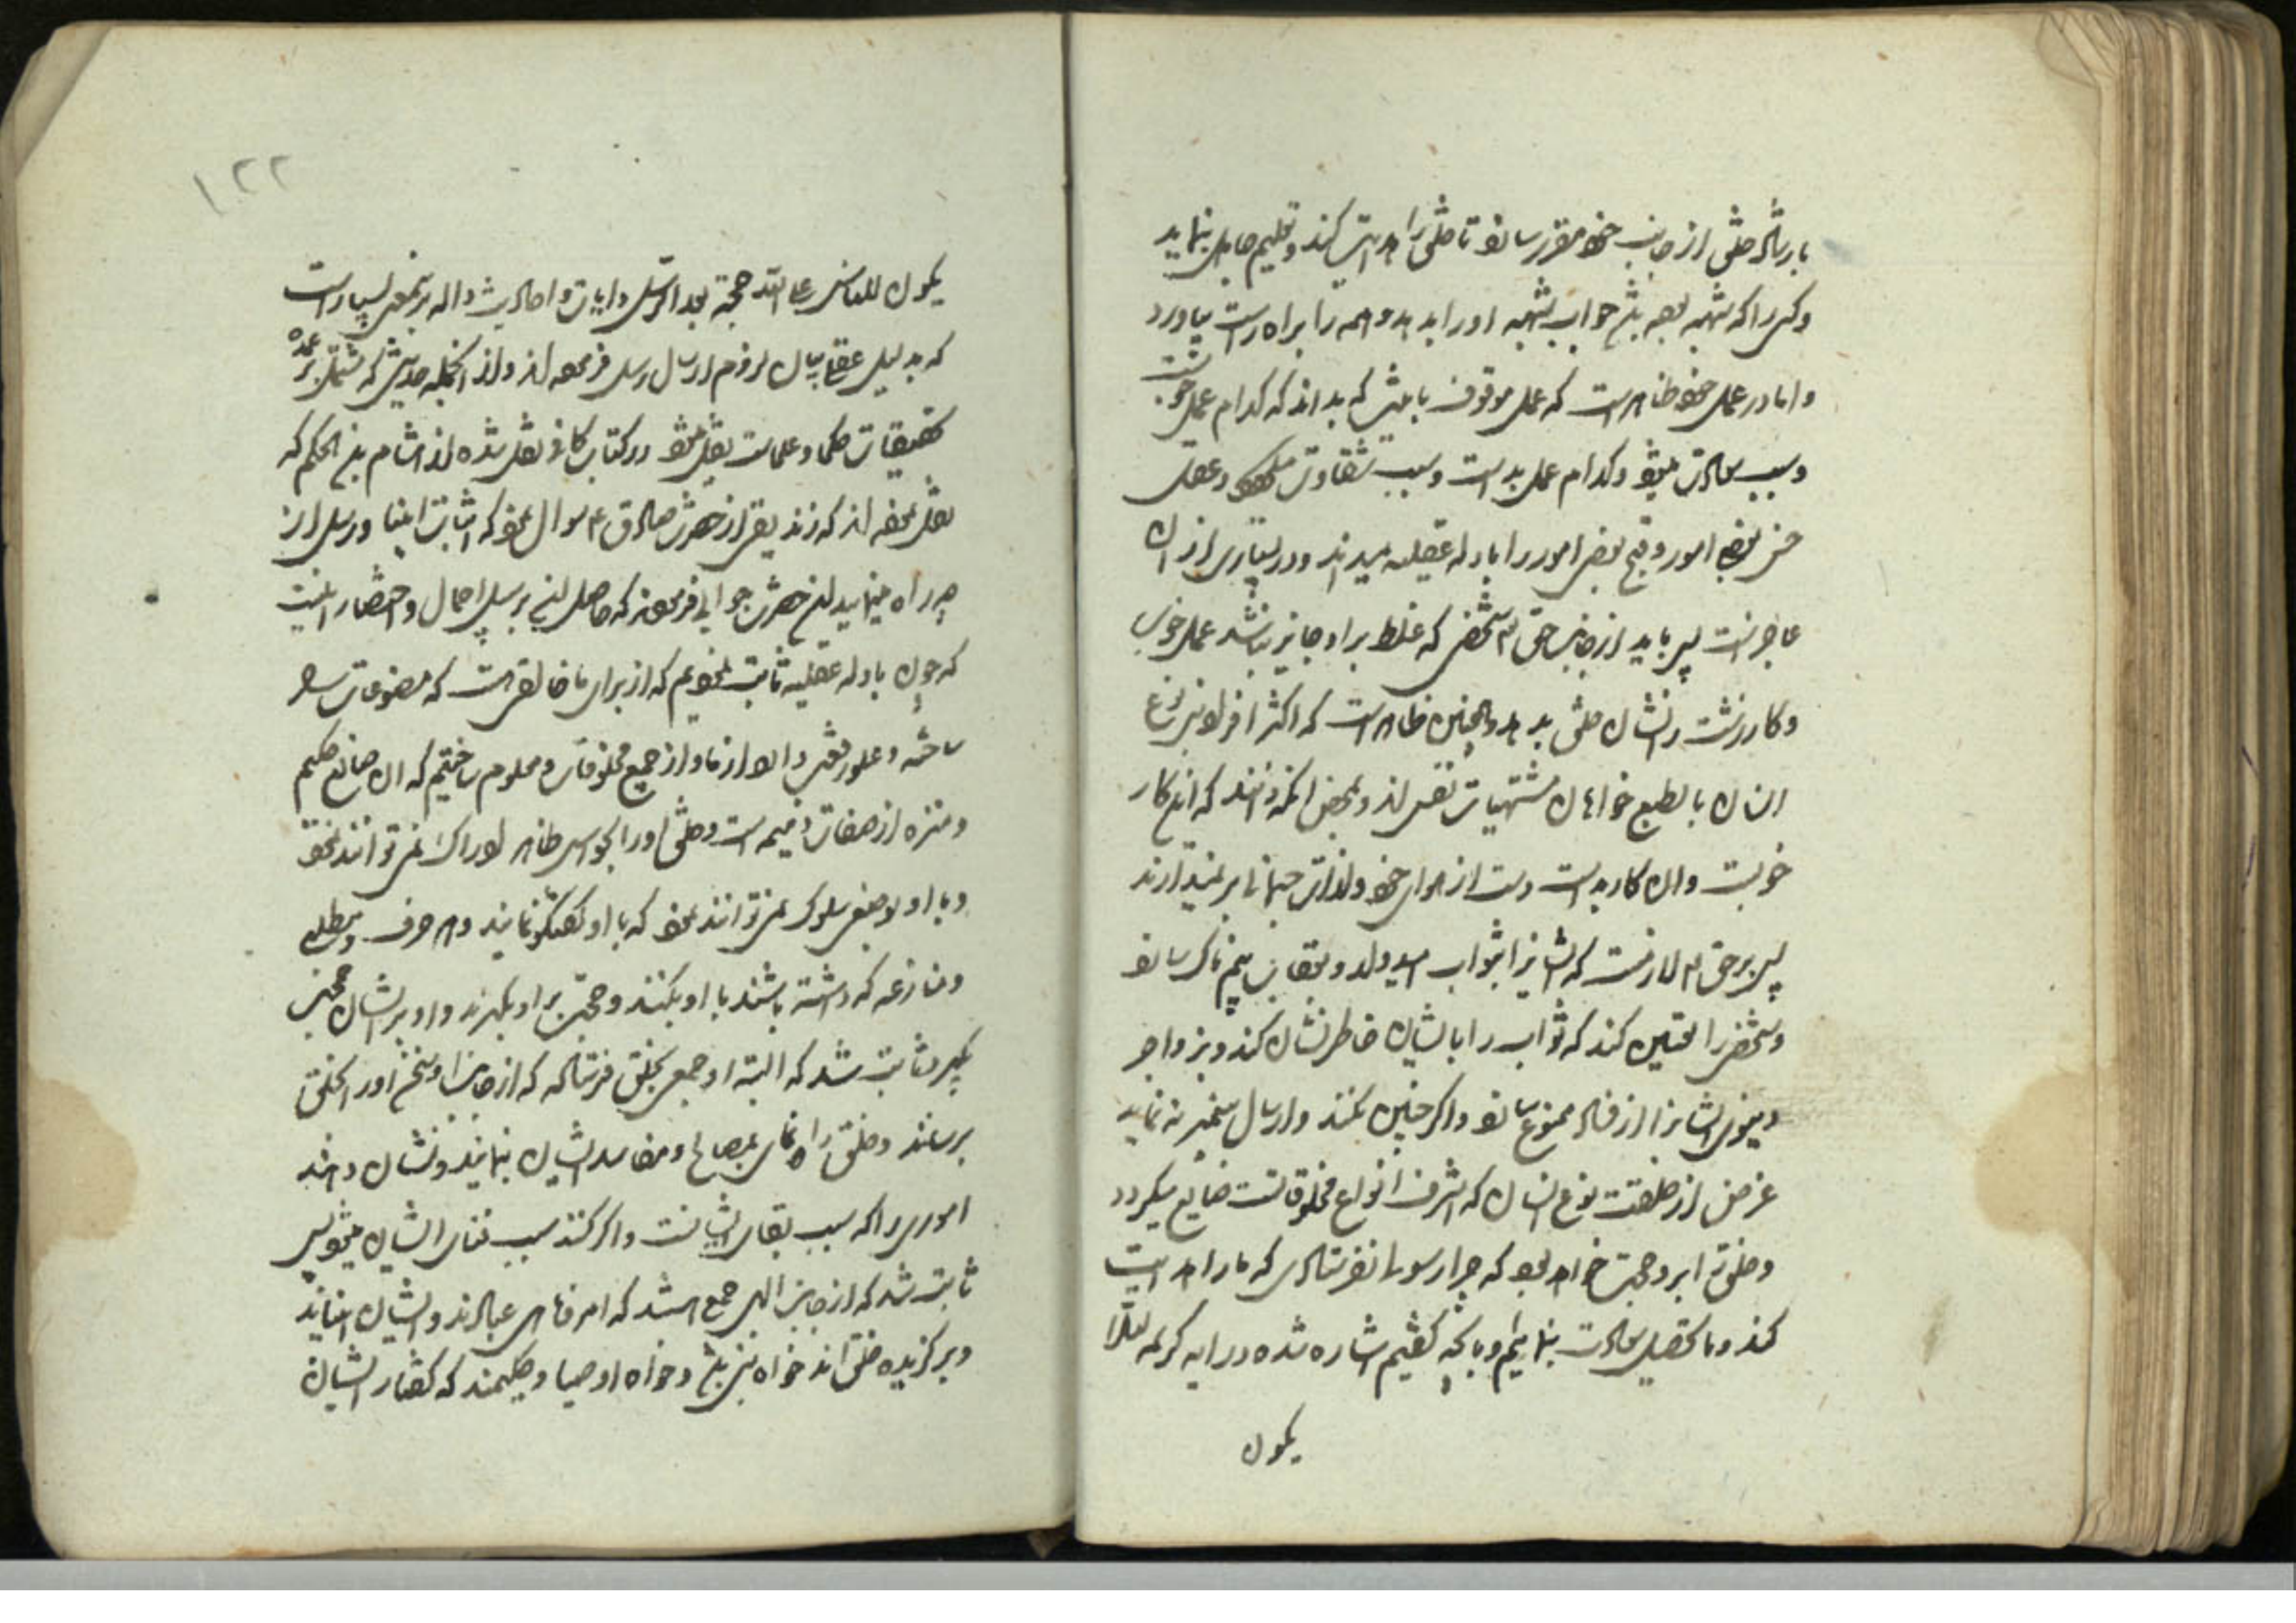 بارشاد خلق از جانب خود مقرر سازد تا خلق را هدایت کند و تعلیم جاهل بنماید
و کسی را که شبهه بوده باشد جواب شبهه او را بدهد و همه را براه راست بیاورد
و اما در عمل خود ظاهرست که عمل موقوف باینست که بداند که کدام عمل خوبست
و سبب سعادت میشود و کدام عمل بد است و سبب شقاوت میشود و عقل
حسن بعضی امور و قبح بعضی امور را بادله عقلیه میداند و در بسیاری از ان
عاجزست پس باید از جانب حق تم شخصی که غلط بر او جایز نباشد عمل خوب
و کار زشت را نشان خلق بدهد و همچنین ظاهرست که اکثر افراد بنی نوع
انسان بالطبع خواهان مشتهیات نفس اند و بمحض انکه دانند که این کار
خوبست و ان کار بد است دست از هوای خود و لذات جسمانی بر نمیدارند
پس بر حق تم لازمست که ایشانرا بثواب امیدوار و بعقاب بیم ناک سازد
و شخصی را تعیین کند که ثواب را بایشان خاطر نشان کند و بزواجر
دنیوی ایشانرا از فساد ممنوع سازد و اکر چنین نکند و ارسال پیغمبر نه نماید
غرض از خلقت نوع انسان که اشرف انواع مخلوقاتست ضایع میکردد
و خلق را بر او حجت خواهد بود که چرا رسولی نفرستادی که ما را هدایت
کند و ما تحصیل سعادت بنمائیم و بانچه کفتیم اشاره شده در ایه کریمه لئلا
یکون
۱۲۲
یکون للناس علی الله حجة بعد الرسل و ایات و احادیث داله بر اینمعنی بسیار است
که بدلیل عقلی بیان لزوم ارسال رسل فرموده اند و از انجمله حدیثی که مشتمل بر عمده
تحقیقات حکما و علماست نقل میشود در کتاب کافی نقل شده از هشام بن الحکم که
نقل نموده اند که زندیقی از حضرت صادق ع سوال نمود که اثبات انبیا و رسل از
چه راه مینمایید ان حضرت جوابی فرمودند که حاصل ان بر سبیل اجمال و اختصار اینست
که چون بادله عقلیه ثابت نمودیم که از برای ما خالقی هست که مصنوعات را
ساخته و علو رفعت دارد از ما و از جمیع مخلوقات و معلوم ساختیم که ان صانع حکیم
و منزه از صفات ذمیمه است و خلق او را بحواس ظاهر ادراک نمی توانند نمود
و با او بوضعی سلوک نمی توانند نمود که با او کفتکو نمایند و هر حرف و مطلب
و منازعه که داشته باشند با او بکنند و حجت بر او بکیرند و او بر ایشان حجت
بکیرد ثابت شد که البته او جمعی بخلق فرستاده که از جانب او سخنان او را بخلق
برسانند و خلق را راه نمائی بمصالح و مفاسد ایشان بنمایند و نشان دهند
اموری را که سبب بقای ایشانست و اکر کنند سبب فنای ایشان میشود پس
ثابت شد که از جانب الهی جمعی هستند که امر و ناهی عبادند و ایشان انبیایند
و برکزیده خلق اند خواه نبی باشد و خواه اوصیا و حکیمند که کفتار ایشان